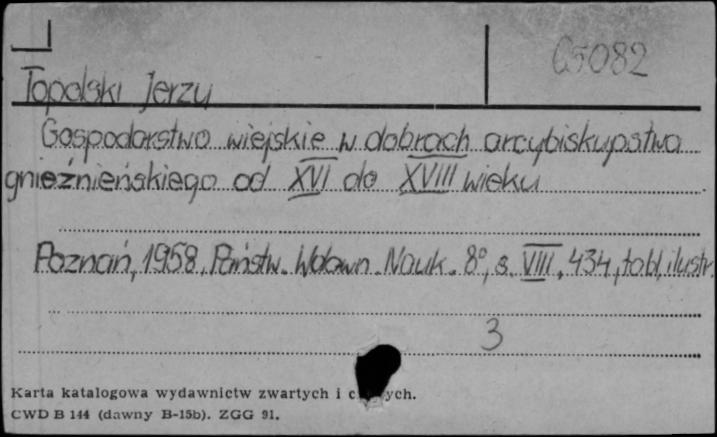 C5082
Topolski Jerzy
Gospodarstwo wiejskie w dobrach arcybiskupstwa
gnieźnieńskiego od XVI do XVIII wieku
Poznań, 1958, Państw. Wdawn. Nauk. 8°, s. VIII, 434, tabl. ilustr.
3
Karta katalogowa wydawnictw zwartych i
CWD B 144 (dawny B-15b). ZGG 91.